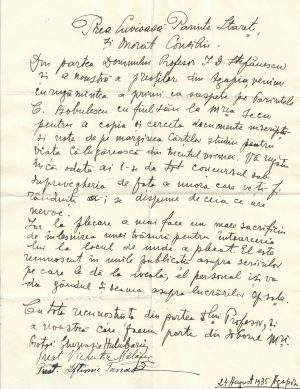 Prea Cuvioase Parinte Staret,
și Onorat Consiliu.
Din partea Domnului Profesor I. D. Ștefănescu
și a noastră a preoților din Agapia venim
cu rugămintea a primi ca oaspete pe Parintele
C. Bobulescu cu fiul său la Mrea Secu
pentru a copia și cerceta documente inscripții
și note de pe marginea cărților studiu pentru
viața călugărească din trecutul vremei. Vă rugăm
încă odată a i-se da tot concursul sub
supravegherea de fața a unora care veți fi
rânduită și se dispune de ceia ce are
nevoe.
Iar la plecare a mai face un mare sacrificiu
de înlesnirea unei trăsuri pentru întoarcerea
lui la locul de unde a plecat. El este
recunoscut în multe publicate asupra scrierilor
pe care le dă la iveală, el personal își va
da gândul și seama asupra lucrărilor
Cu tot recunoștința din partea Profesor, și
a noastră care facem parte din soborul
Gherasie
preot Nichita
Preot
23 August 1935 Agapia